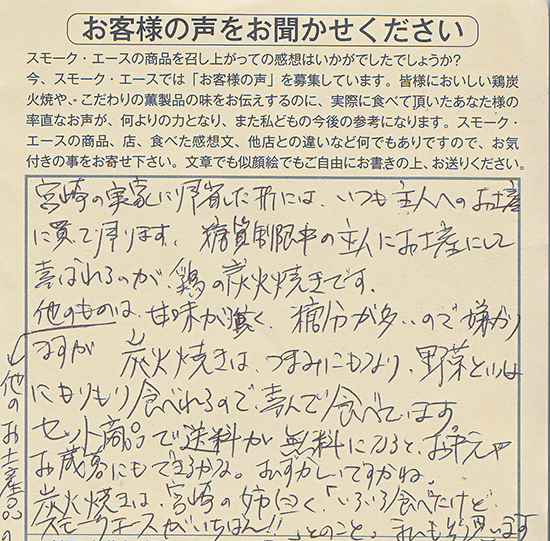 お客様の声をお聞かせください
スモーク・エースの商品を召し上がっての感想はいかがでしたでしょうか?
今、スモーク・エースでは「お客様の声」を募集しています。皆様においしい鶏炭
火焼や、こだわりの薫製品の味をお伝えするのに、実際に食べて頂いたあなた様の
率直なお声が、何よりの力となり、また私どもの今後の参考になります。スモーク・
エースの商品、店、食べた感想文、他店との違いなど何でもありですので、お気
付きの事をお寄せ下さい。文章でも似顔絵でもご自由にお書きの上、お送りください。
宮崎の実家に帰省した折には、いつも主人へのお土産
に買って帰ります。糖質制限中の主人にお土産にして
喜ばれるのが、鶏の炭火焼きです。
他のものは、甘味が強く、糖分が多いので嫌がり
ますが 炭火焼きは、つまみにもなり、野菜といっしょ
にもりもり食べれるので、喜んで食べています
セット商品で送料が無料になると、お中元や
お歳暮にもできるかな。むずかしいですかね。
炭火焼きは、宮崎の姉曰く、「いろいろ食べたけど
スモークエースがいちばん!!」とのこと。
他のお土産品の